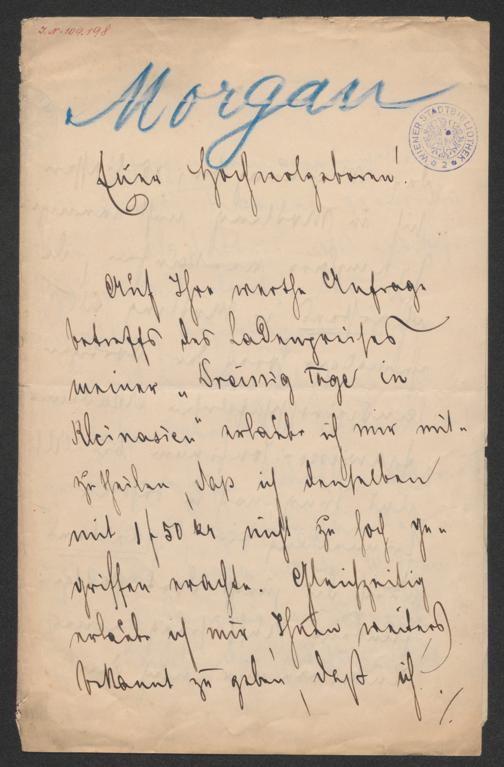 J.N. 109.198
Morgan
WIENER STADTBIBLIOTHEK
2
Euer Hochwolgeboren!
Auf Ihre werthe Anfrage
betreffs des Ladenpreises
meiner „Dreissig Tage in
Kleinasien“ erlaube ich mir mit-
zutheilen, daß ich denselben
mit 1 f 50 kr nicht zu hoch ge-
griffen erachte. Gleichzeitig
erlaube ich mir, Ihnen weiters
bekannt zu geben, daß ich ./.